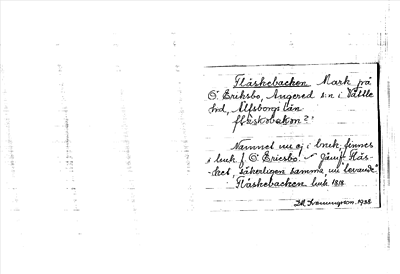 Fläskebacken Mark på
Ö. Eriksbo, Angered s:n i Vättle
hd, Älfsborgs län
fläskəbakən?
Namnet nu ej i bruk, finnes
i buk. f. Ö. Ericsbo. Jämf. Fläs-
ket, säkerligen samma, nu "levande".
Fläskebacken buk. 1818
DM. Svenungsson. 1938